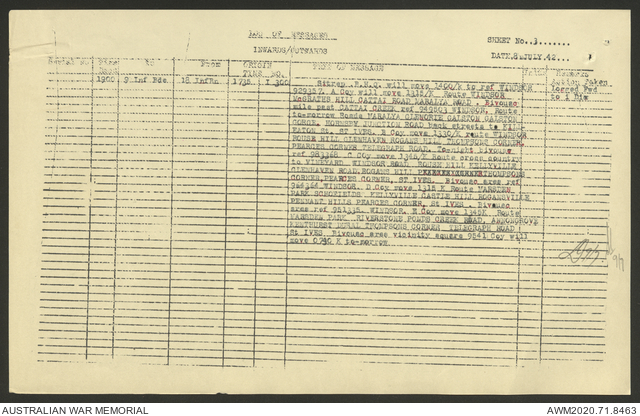 LOG OF MESSAGES
SHEET No. 3
INWARDS/OUTWARDS
DATE. 8. JULY.42
Serial No Time To From ORIGIN TEXT OF MESSAGE Remarks
TIME No. Action Taken
1900 9 Inf Bde 18 InfBn 1735 I 300 Sitrep. B.H.Q. will move 1400/K to ref WINDSOR logged Fwd
929357. A Coy will move 1315/K. Route WINDSOR to 1 Div
McGRATHS HILL CATTAI ROAD MARALYA ROAD. Bivouac
mile past CATTAI CREEK ref 949503 WINDSOR. Route
to-morrow Roads MARALYA GLENORIE GALSTON GALSTON
GORGE. HORNSBY JUNCTION ROAD back streets to
EATON St. ST IVES. B Coy move 1330/K route WINDSOR
ROUSE HILL GLENHAVEN ROGANS HILL THOMPSONS CORNER,
PEARCES CORNER TELEGRAPH ROAD. To-night bivouac
ref 983368. C Coy move 1345/K Route cross country
to VINEYARD WINDSOR ROAD ROUSE HILL KELLYVILLE
GLENHAVEN ROAD, ROGANS HILL THOMPSONS
CORNER, PEARCES CORNER, ST.IVES. Bivouac area ref
966364 WINDSOR. D Coy move 1315 K Route MARSDEN
PARK SCHOFIELDS KELLYVILLE CASTLE HILL ROGANSVILLE
PENNANT HILLS PEARCES CORNER, St IVES. Bivouac
area ref 951335 WINDSOR. E Coy move 1345K Route
MARSDEN PARK RIVERSTONE PONDS CREEK ROAD, ANNANGROVE
KENTHURST DURAL THOMPSONS CORNER TELEGRAPH ROAD
St IVES. Bivouac area vicinity square 9541 Coy will
move 0730 K to-morrow.
9/7
AUSTRALIAN WAR MEMORIAL
AWM2020.71.8463